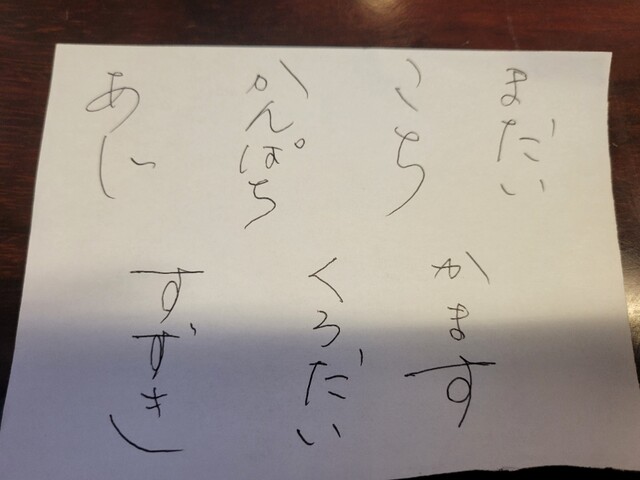 まだい
こち
かんぱち
あじ
かます
くろだい
すずき